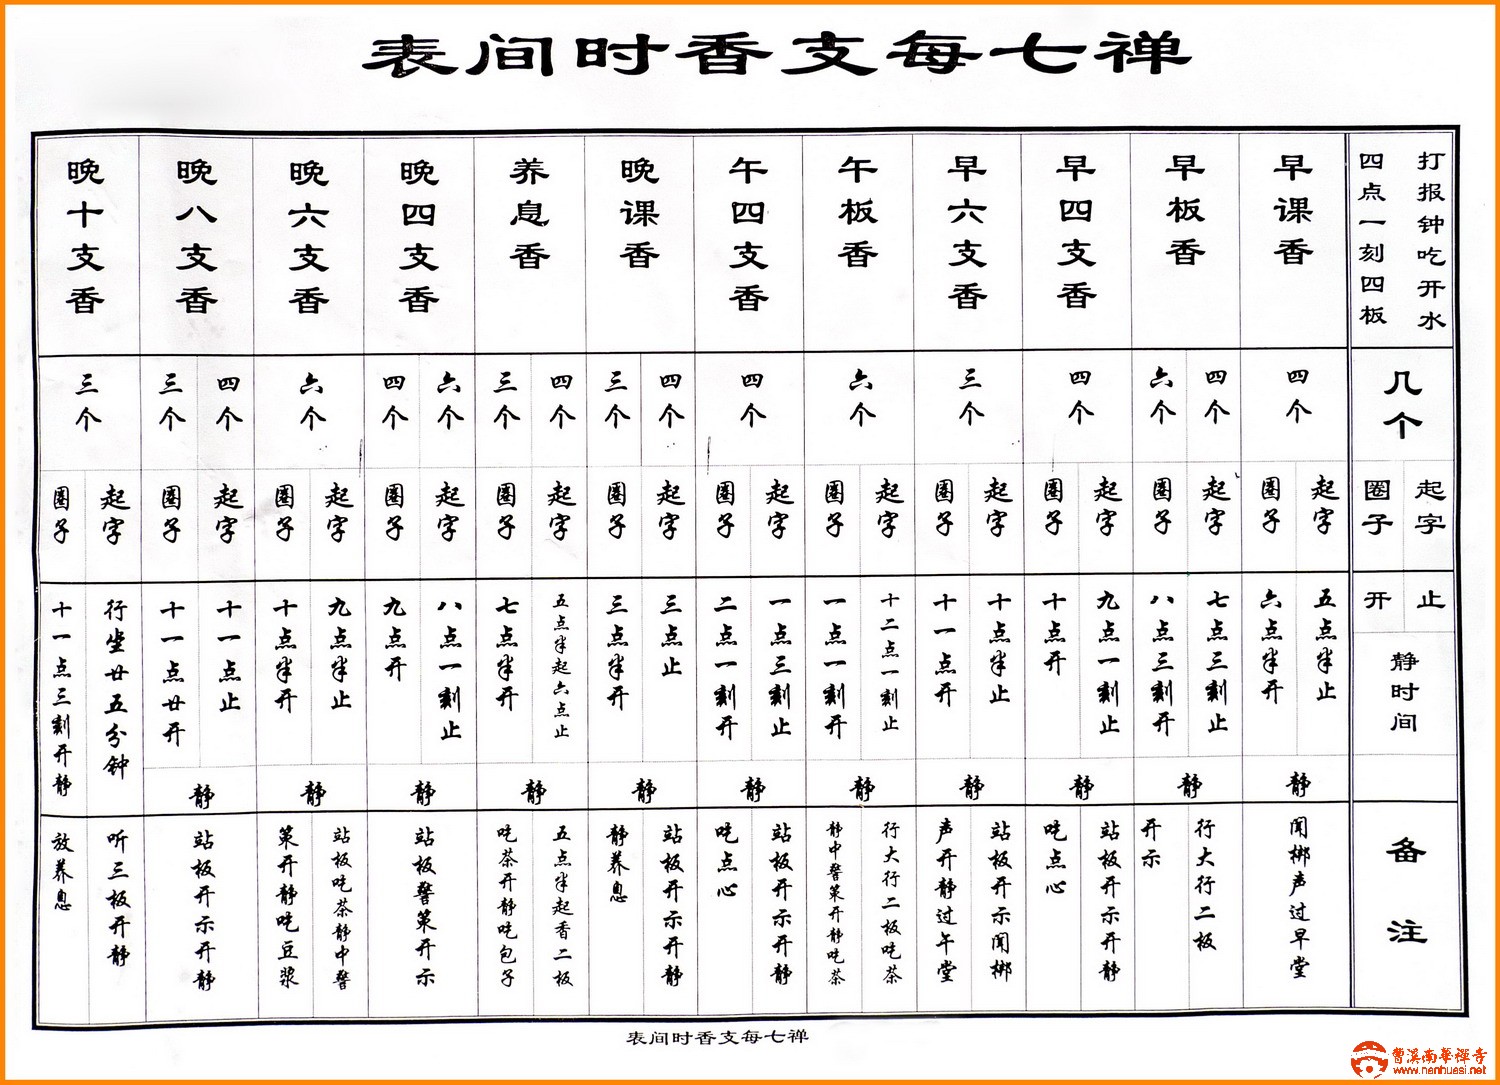 禅七每支香时间表
打报钟吃开水
四点一刻四板
几个
起字
圈子
止
开
静时间
备注
早课香
四个
起字
圈子
五点半止
六点半开
静
闻梆声过早堂
早板香
四个
六个
起字
圈子
七点三刻止
八点三刻开
静
行大行二板
开示
早四支香
四个
起字
圈子
九点一刻止
十点开
静
站板开示开静
吃点心
早六支香
三个
起字
圈子
十点半止
十一点开
静
站板开示闻梆
声开静过午堂
午板香
六个
起字
圈子
十二点一刻止
一点一刻开
静
行大行二板吃茶
静中警策开静吃茶
午四支香
四个
起字
圈子
一点三刻止
二点一刻开
静
站板开示开静
吃点心
晚课香
四个
三个
起字
圈子
三点止
三点半开
静
站板开示开静
静养息
养息香
四个
三个
起字
圈子
五点半起六点止
七点半开
静
五点半起香二板
吃茶开静吃包子
晚四支香
六个
四个
起字
圈子
八点一刻止
九点开
静
站板警策开示
晚六支香
六个
起字
圈子
九点半止
十点半开
静
站板吃茶静中警
策开静吃豆浆
晚八支香
四个
三个
起字
圈子
十一点止
十一点廿开
静
站板开示开静
晚十支香
三个
起字
圈子
行坐廿五分钟
十一点三刻开静
听三板开静
放养息
禅七每支香时间表
曹溪南華禪寺
www.nanhuasi.net